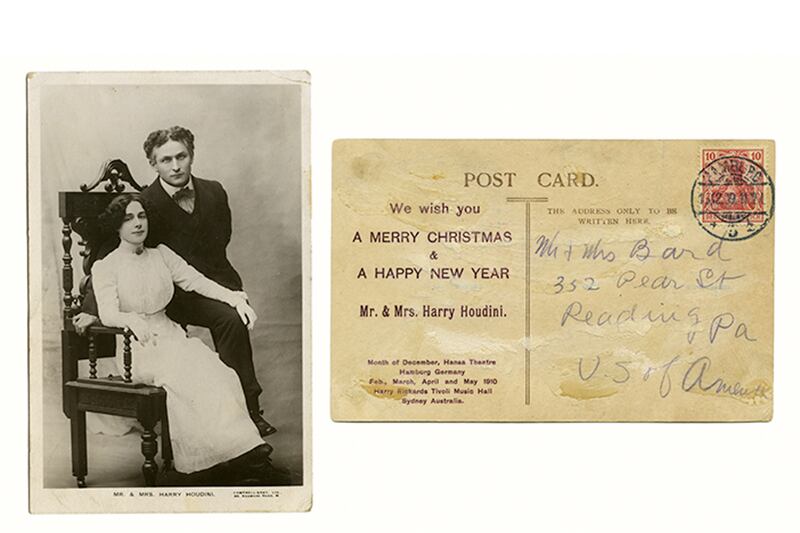 MR. & MRS. HARRY HOUDINI.
POST CARD.
We wish you
A MERRY CHRISTMAS
&
A HAPPY NEW YEAR
Mr. & Mrs. Harry Houdini.
Month of December, Hansa Theatre
Hamborg Germany
Feb., March, April and May 1910
Harry Rickards Tivoli Music Hall
Sydney Australia.
THE ADDRESS ONLY TO BE
WRITTEN HERE.
10 10
Mr & Mrs Bard
352 Pear St
Reading Pa
U.S of